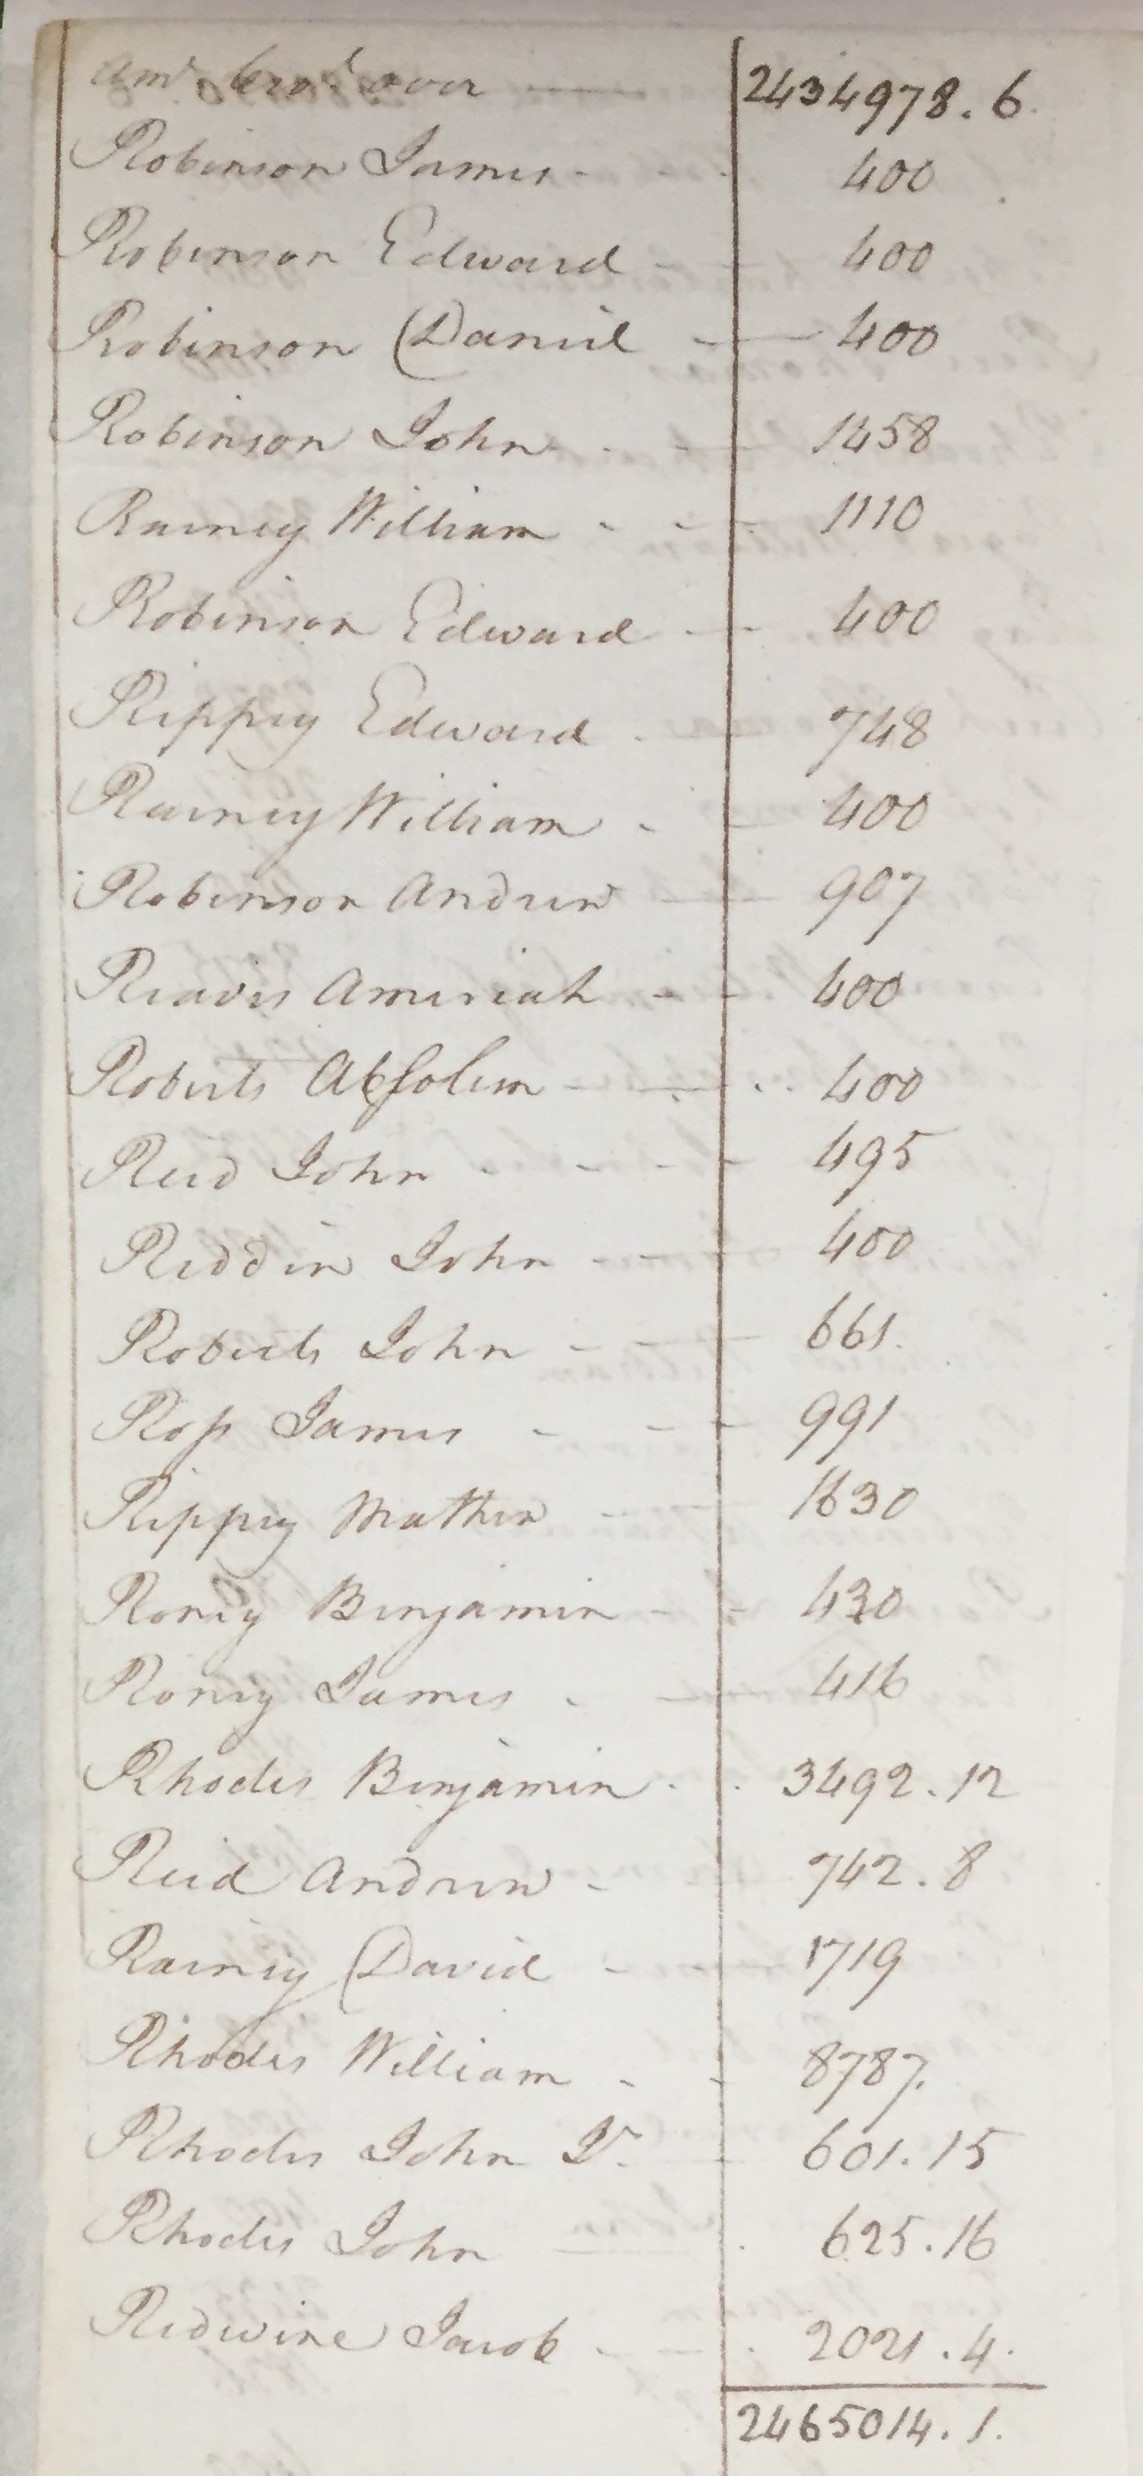 Amt brot over 2434978.6
Robinson James 400
Robinson Edward 400
Robinson Daniel 400
Robinson John 1458
Rainey William 1110
Robinson Edward 400
Rippey Edward 748
Rainey William 400
Robinson Andrew 907
Reavis Ameriah 400
Roberts Absolem 400
Reid John 495
Reddin John 400
Roberts John 661.
Ross James 991
Rippey Mathew 1630
Roney Benjamin 430
Roney James 416
Rhodes Benjamin 3492.12
Reid Andrew 742.8
Rainey David 1719
Rhodes William 8787.
Rhodes John Jr. 601.15
Rhodes John 625.16
Redwine Jacob 2021.4.
2465014.1.